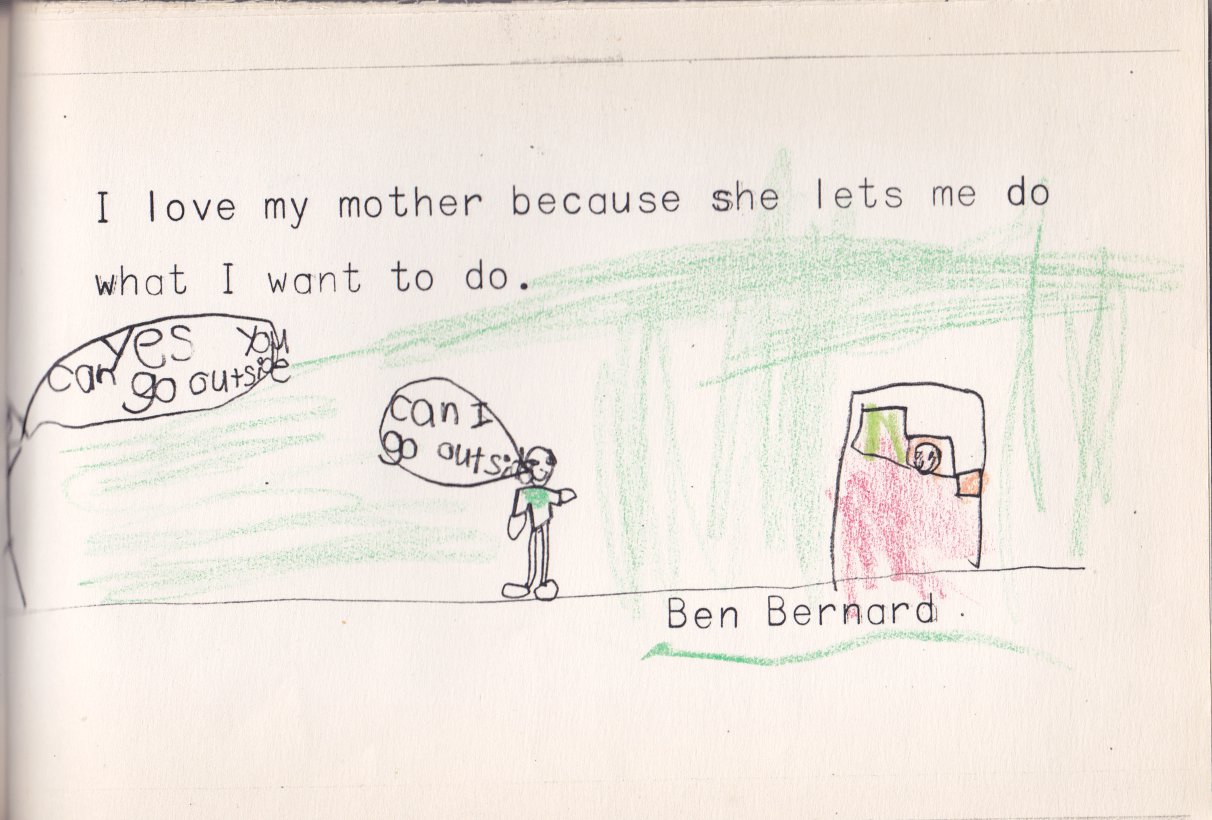 I love my mother because she lets me do
what I want to do.
yes you
can go outside
can I
go outside
N
Ben Bernard.